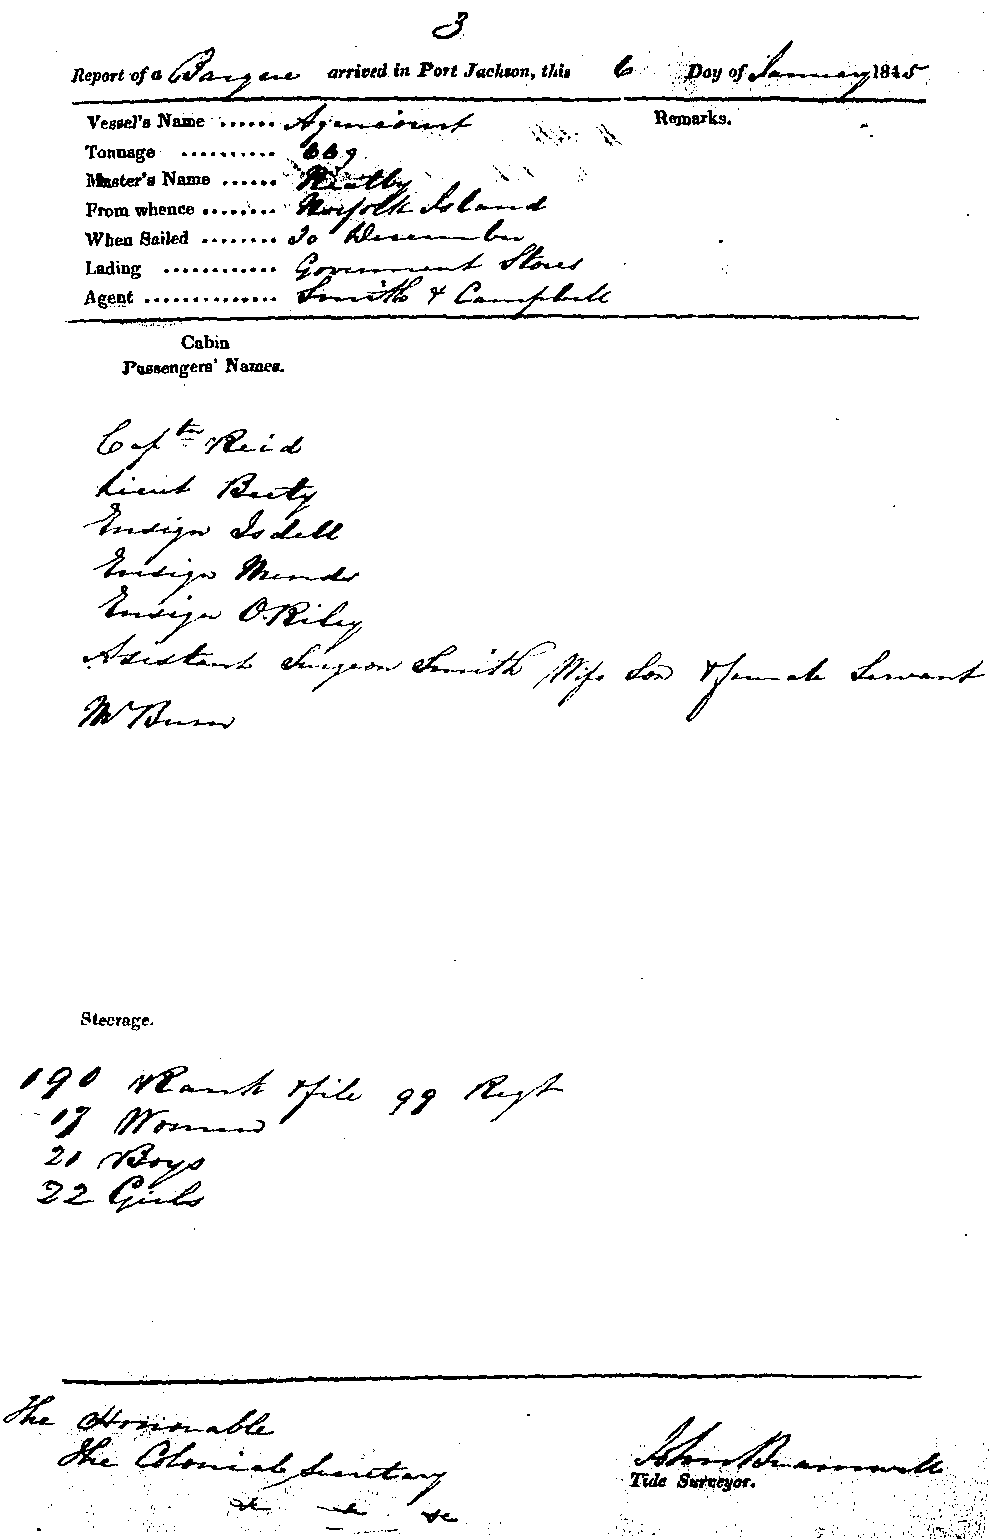 3
Report of a Barque arrived in Port Jackson, this 6 Day of January 1845
Vessel's Name ...... Agincourt Remarks.
Tonnage .......... 669
Master's Name ...... Neatby
From whence ........ Norfolk Island
When Sailed ........ 20 December
Lading ............ Government Stores
Agent .............. Smith & Campbell
Cabin
Passengers' Names.
Captn Reid
Lieut Beety
Ensign Isdell
Ensign Mends
Ensign O.Riley
Asistant Surgeon Smith Wife Son & female Servant
Mr Bunn
Steerage.
190 Rank & file 99 Regt
17 Women
21 Boys
22 Girls
The Honorable
The Colonial Secretary
&c &c &c
John Bramwell
Tide Surveyor.